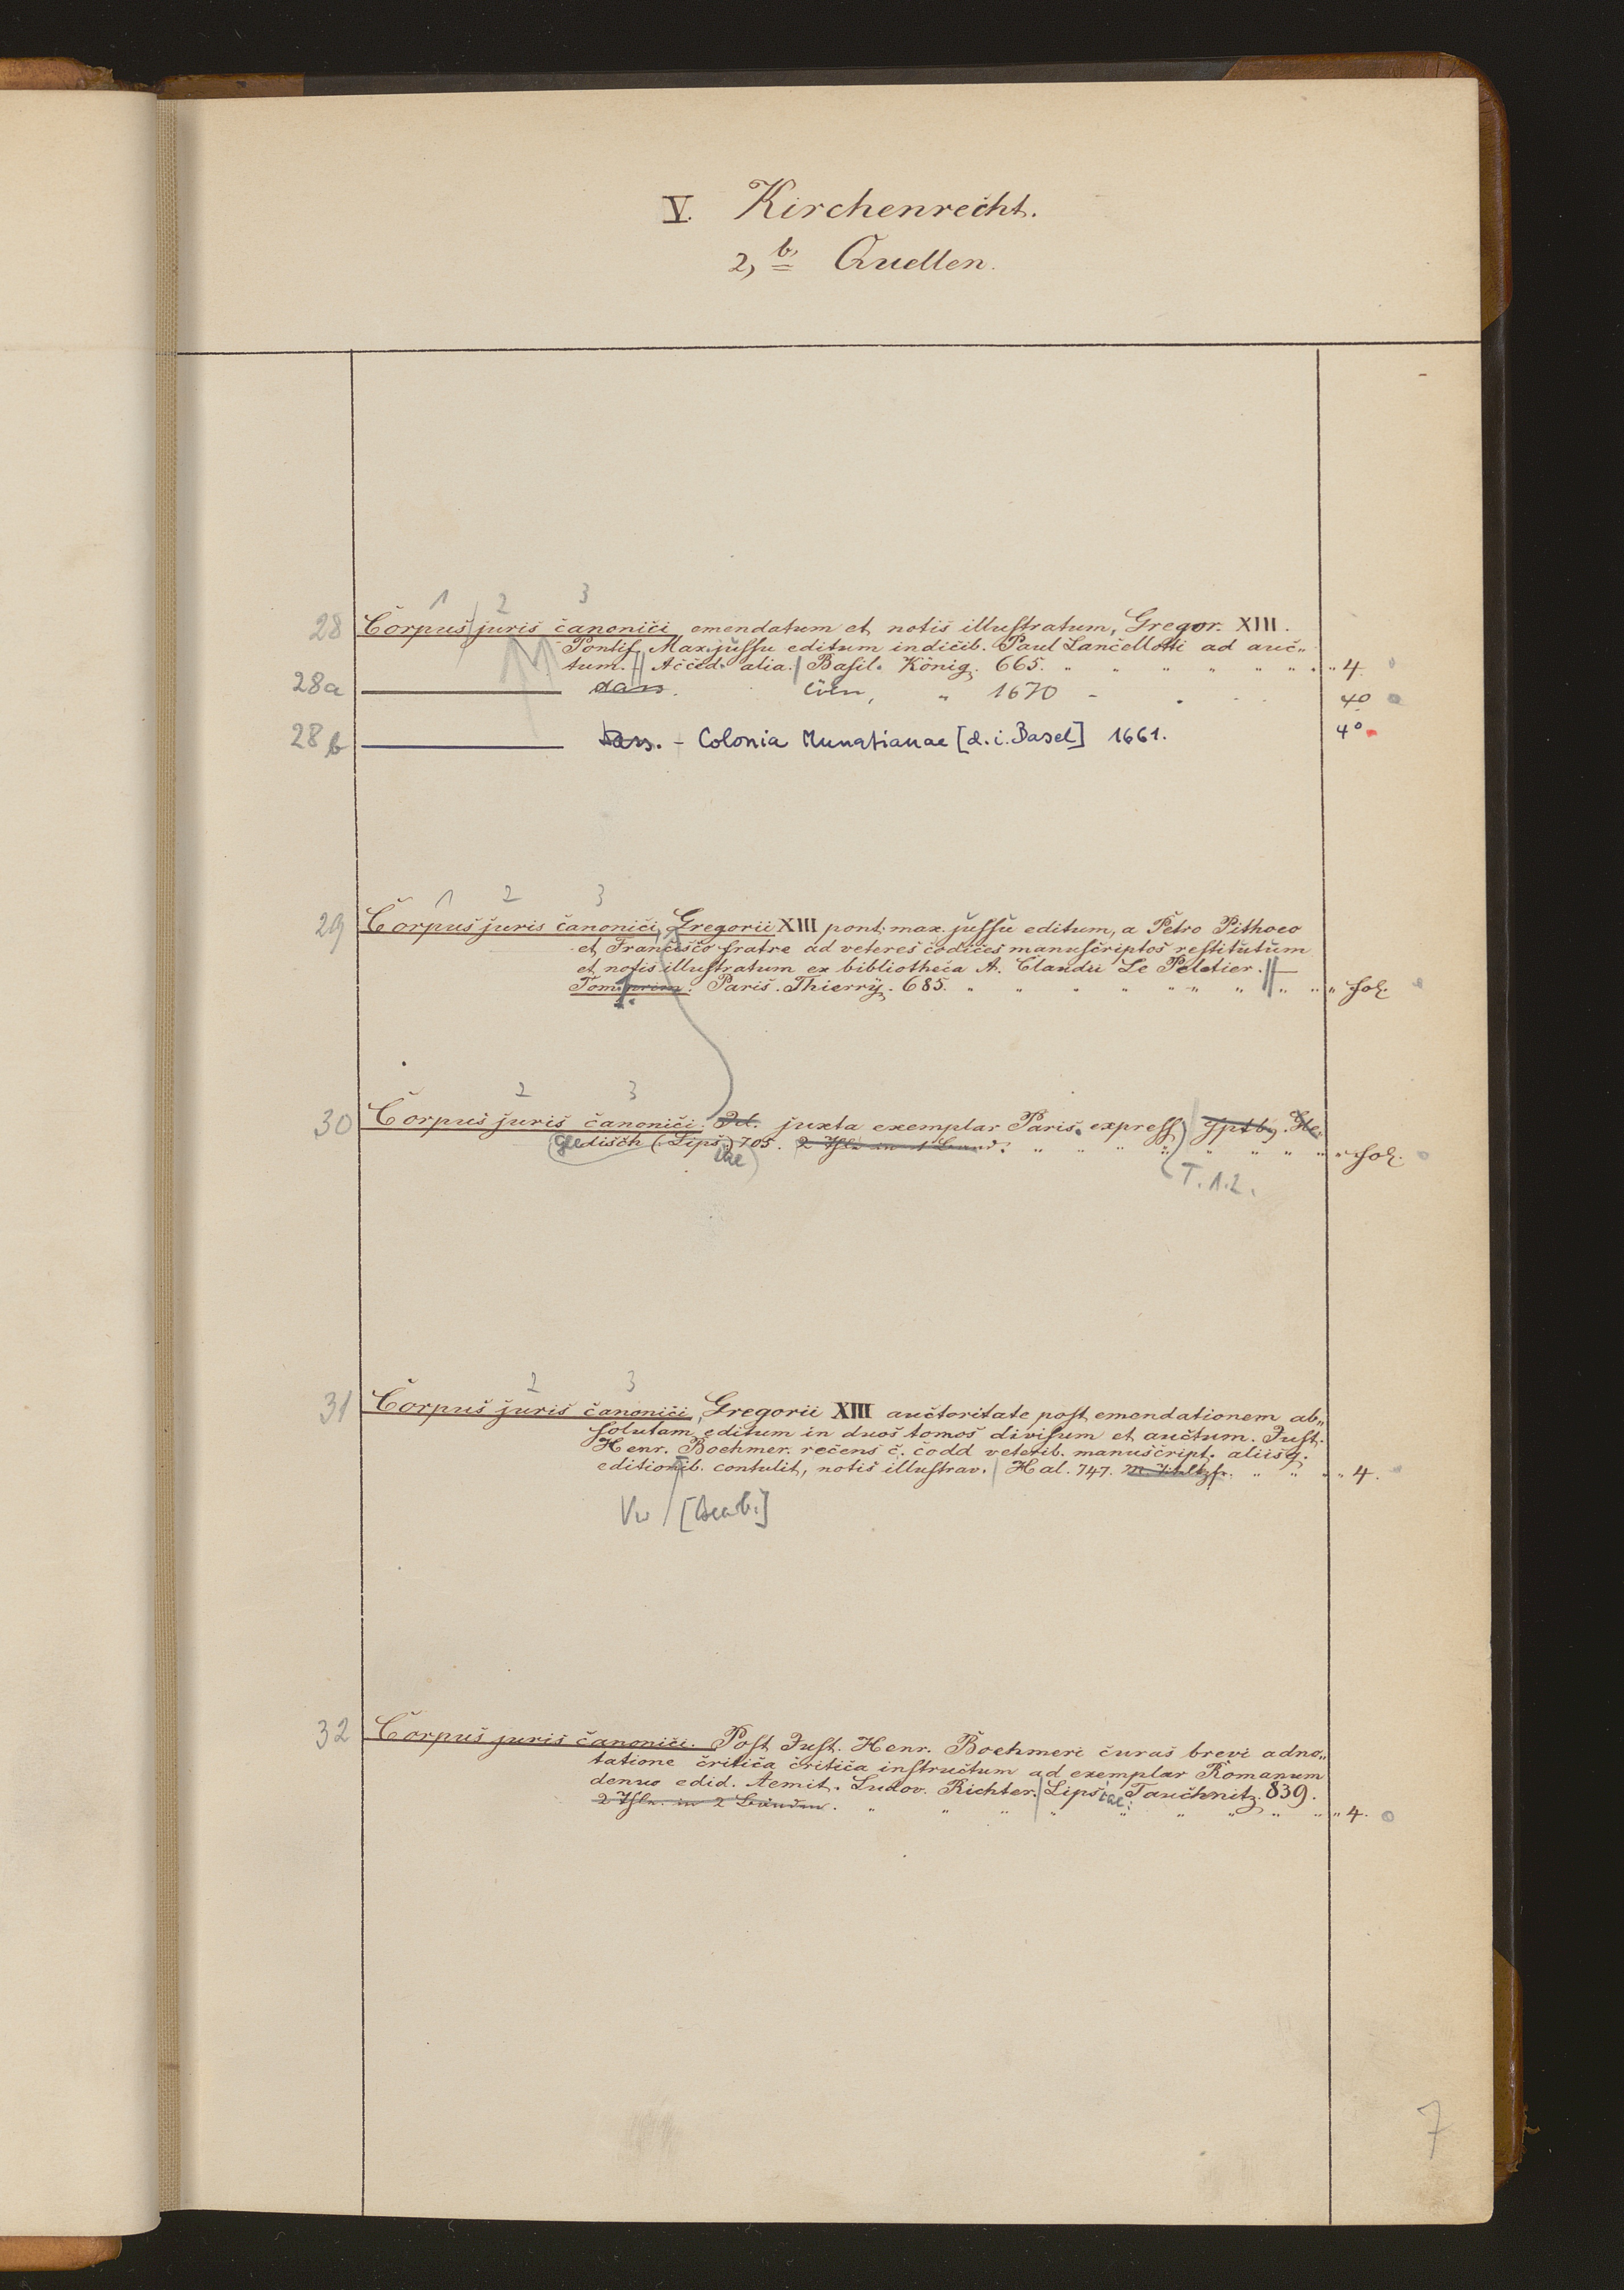 V. Kirchenrecht.
2, b, Quellen.
1 2 3
28 Corpus juris canonici, emendatum et notis illustratum, Gregor. XIII.
Pontif. Max. jussu editum indicib. Paul Lancellotti ad auc„
tum. Acced. alia. Basil. König. 665. „ „ „ „ „ „ 4.
28a dass. „ 1670 - 4o
28b dass. - Colonia Munatianae [d.i. Basel] 1661. 4o
1 2 3
29 Corpus juris canonici, Gregorii XIII pont. max. jussu editum, a Petro Pithoeo
et Francisco fratre ad veteres codices manuscriptos restitutum
et notis illustratum ex bibliotheca A. Claudii Le Peletier. —
Tom. prim. Paris. Thierry. 685. „ „ „ „ „ „ „ „ fol.
2 3
30 Corpus juris canonici. Id. juxta exemplar Paris. express.
Gleditsch (Lips.) 705. 2 Thle in 1 Band. „ „ „ „ „ „ „ fol.
iae T. 1.2.
2 3
31 Corpus juris canonici, Gregorii XIII auctoritate post emendationem ab„
solutam editum in duos tomos divisum et auctum. Just.
Henr. Boehmer. recens c. codd vetetib. manuscript. aliisq.
editionib. contulit, notis illustrav. Hal. 747. „ „ „ 4.
32 Corpus juris canonici. Post Just. Henr. Boehmeri curas brevi adno„
tatione critica critica instructum ad exemplar Romanum
denuo edid. Aemil. Ludov. Richter. Lips. iae: Tauchnitz. 839.
2 Thle. in 2 Bänden. „ „ „ „ „ „ „ „ 4.
7